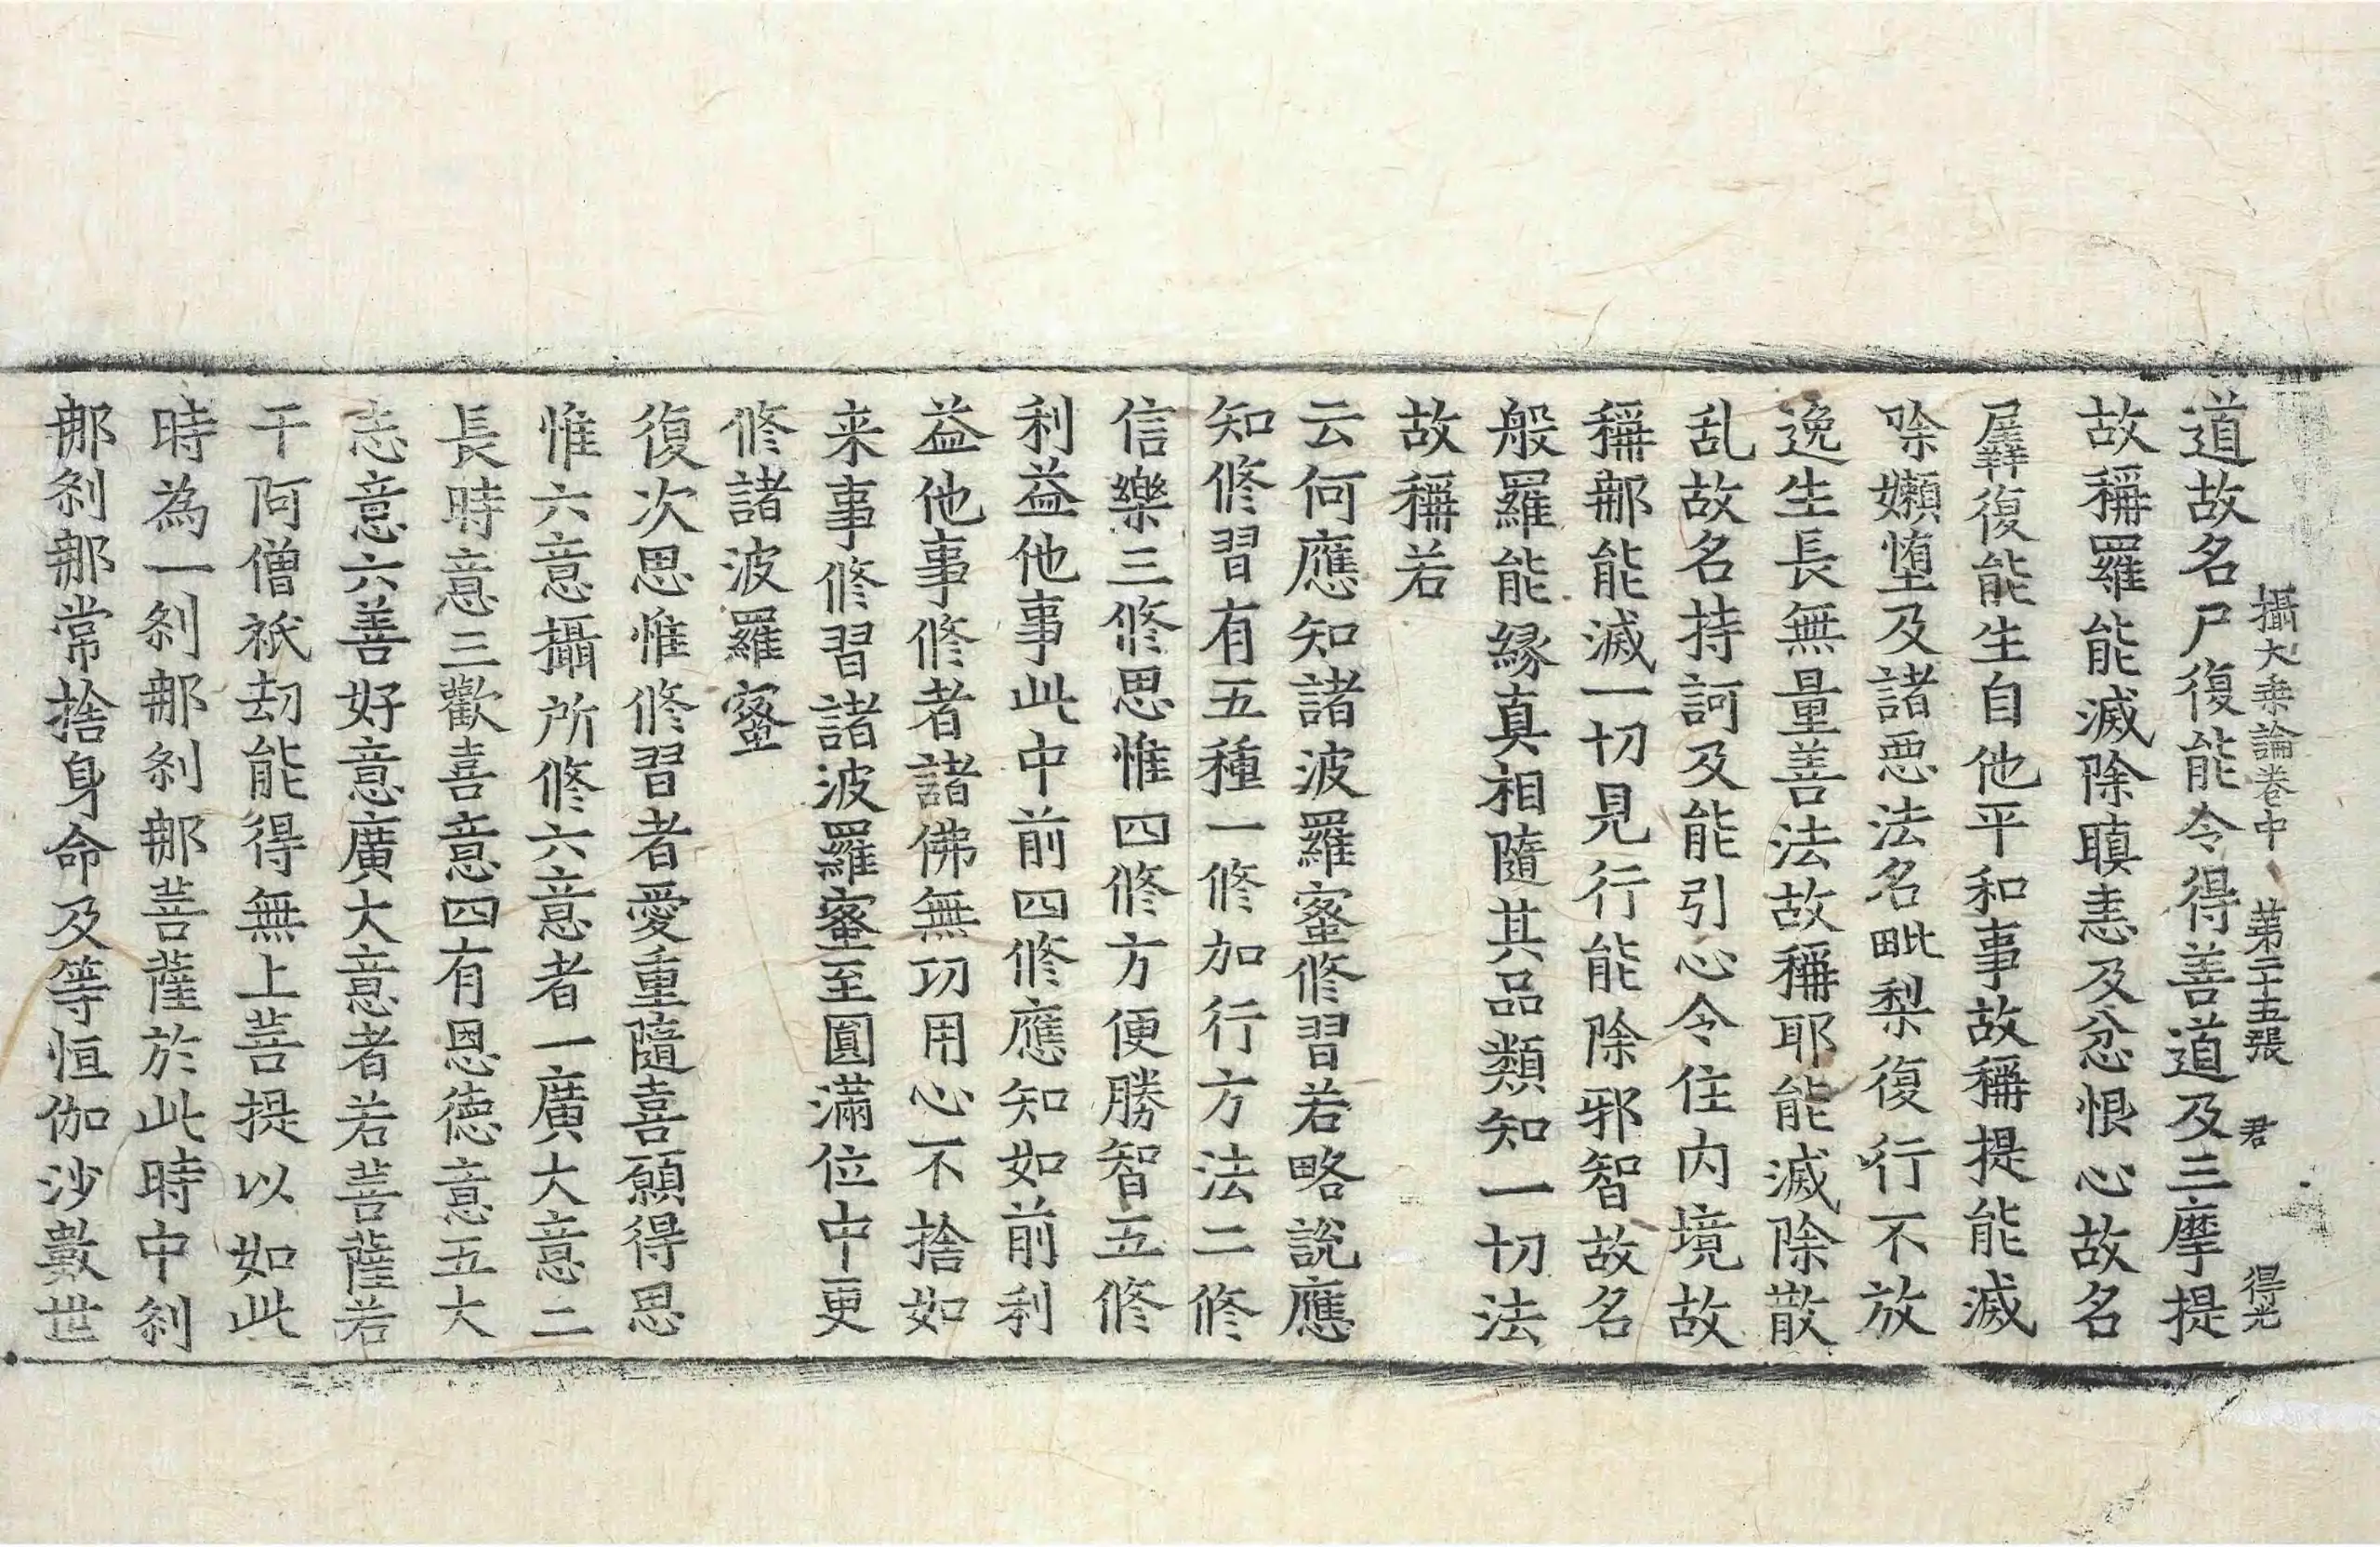 攝大乗論卷中 第二十五張 君 得光
道故名尸復能令得善道及三摩提
故稱羅能滅除瞋恚及忿恨心故名
羼復能生自他平和事故稱提能滅
除嬾墮及諸惡法名毗梨復行不放
逸生長無量善法故稱耶能滅除散
乱故名持訶及能引心令住内境故
稱那能滅一切見行能除邪智故名
般羅能縁真相隨其品類知一切法
故稱若
云何應知諸波羅蜜修習若略說應
知修習有五種一修加行方法二修
信樂三修思惟四修方便勝智五修
利益他事此中前四修應知如前利
益他事修者諸佛無功用心不捨如
来事修習諸波羅蜜至圓滿位中更
修諸波羅蜜
復次思惟修習者愛重隨喜願得思
惟六意攝所修六意者一廣大意二
長時意三歡喜意四有恩德意五大
志意六善好意廣大意者若菩薩若
干阿僧祇劫能得無上菩提以如此
時為一刹那刹那菩薩於此時中刹
那刹那常捨身命及等恒伽沙數世